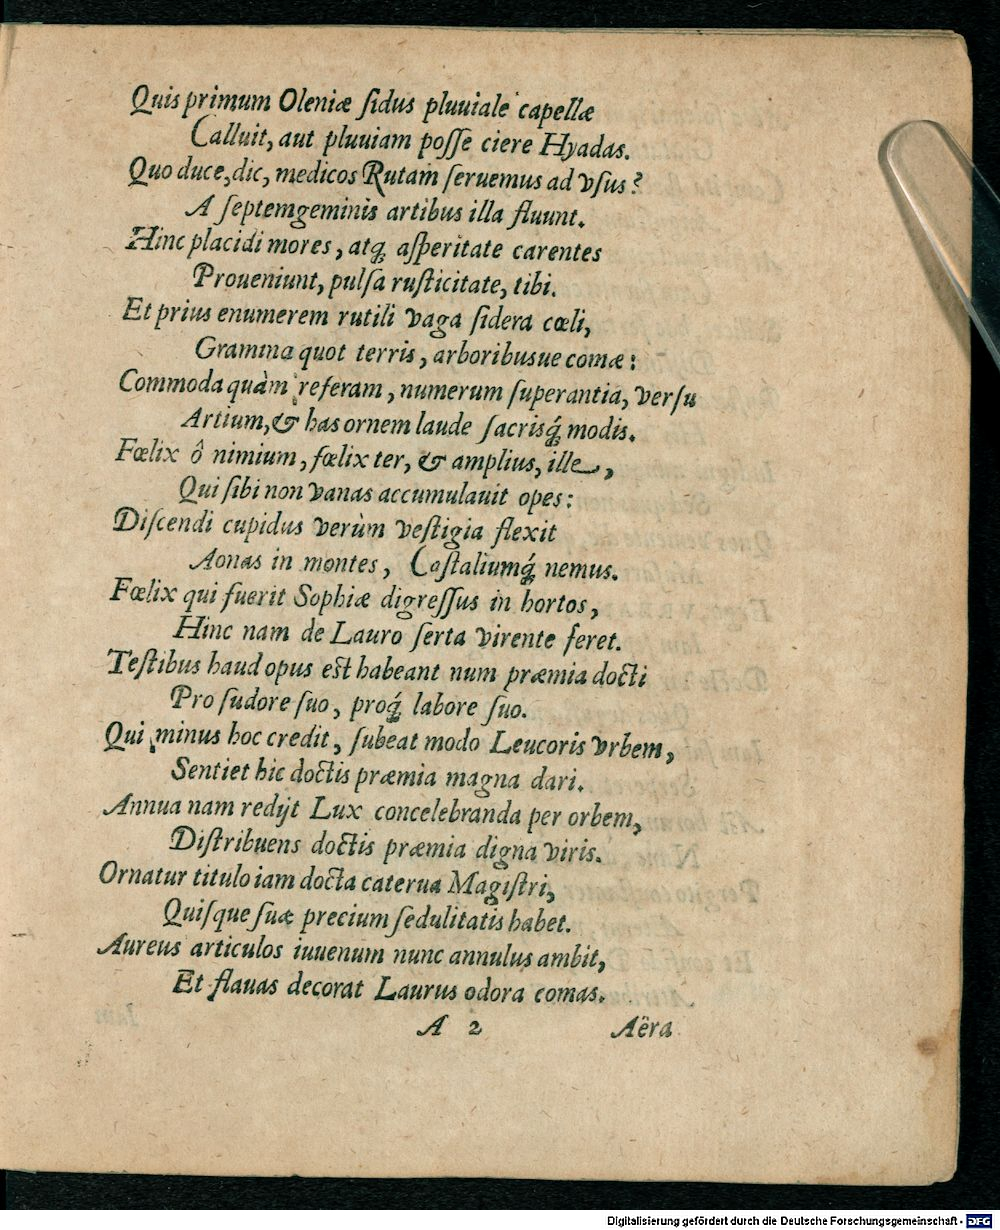 Quis primum Oleniæ ſidus pluuiale capellæ
Calluit, aut pluuiam poſſe ciere Hyadas.
Quo duce, dic, medicos Rutam ſeruemus ad vſus?
A ſeptemgeminis artibus illa fluunt.
Hinc placidi mores, atq́; aſperitate carentes
Proueniunt, pulſa ruſticitate, tibi.
Et prius enumerem rutili vaga ſidera cœli,
Gramina quot terris, arboribusue comæ:
Commoda quàm referam, numerum ſuperantia, verſu
Artium, & has ornem laude ſacrisq́; modis.
Fœlix ô nimium, fœlix ter, & amplius, ille,
Qui ſibi non vanas accumulauit opes:
Diſcendi cupidus verùm veſtigia flexit
Aonas in montes, Caſtaliumq́; nemus.
Fœlix qui fuerit Sophiæ digreſſus in hortos,
Hinc nam de Lauro ſerta virente feret.
Teſtibus haud opus eſt habeant num præmia docti
Pro ſudore ſuo, proq́; labore ſuo.
Qui minus hoc credit, ſubeat modo Leucoris vrbem,
Sentiet hic doctis præmia magna dari.
Annua nam redijt Lux concelebranda per orbem,
Diſtribuens doctis præmia digna viris.
Ornatur titulo iam docta caterua Magiſtri,
Quiſque ſuæ precium ſedulitatis habet.
Aureus articulos iuuenum nunc annulus ambit,
Et flauas decorat Laurus odora comas.
A 2 Aëra
Digitalisierung gefördert durch die Deutsche Forschungsgemeinschaft - DFG